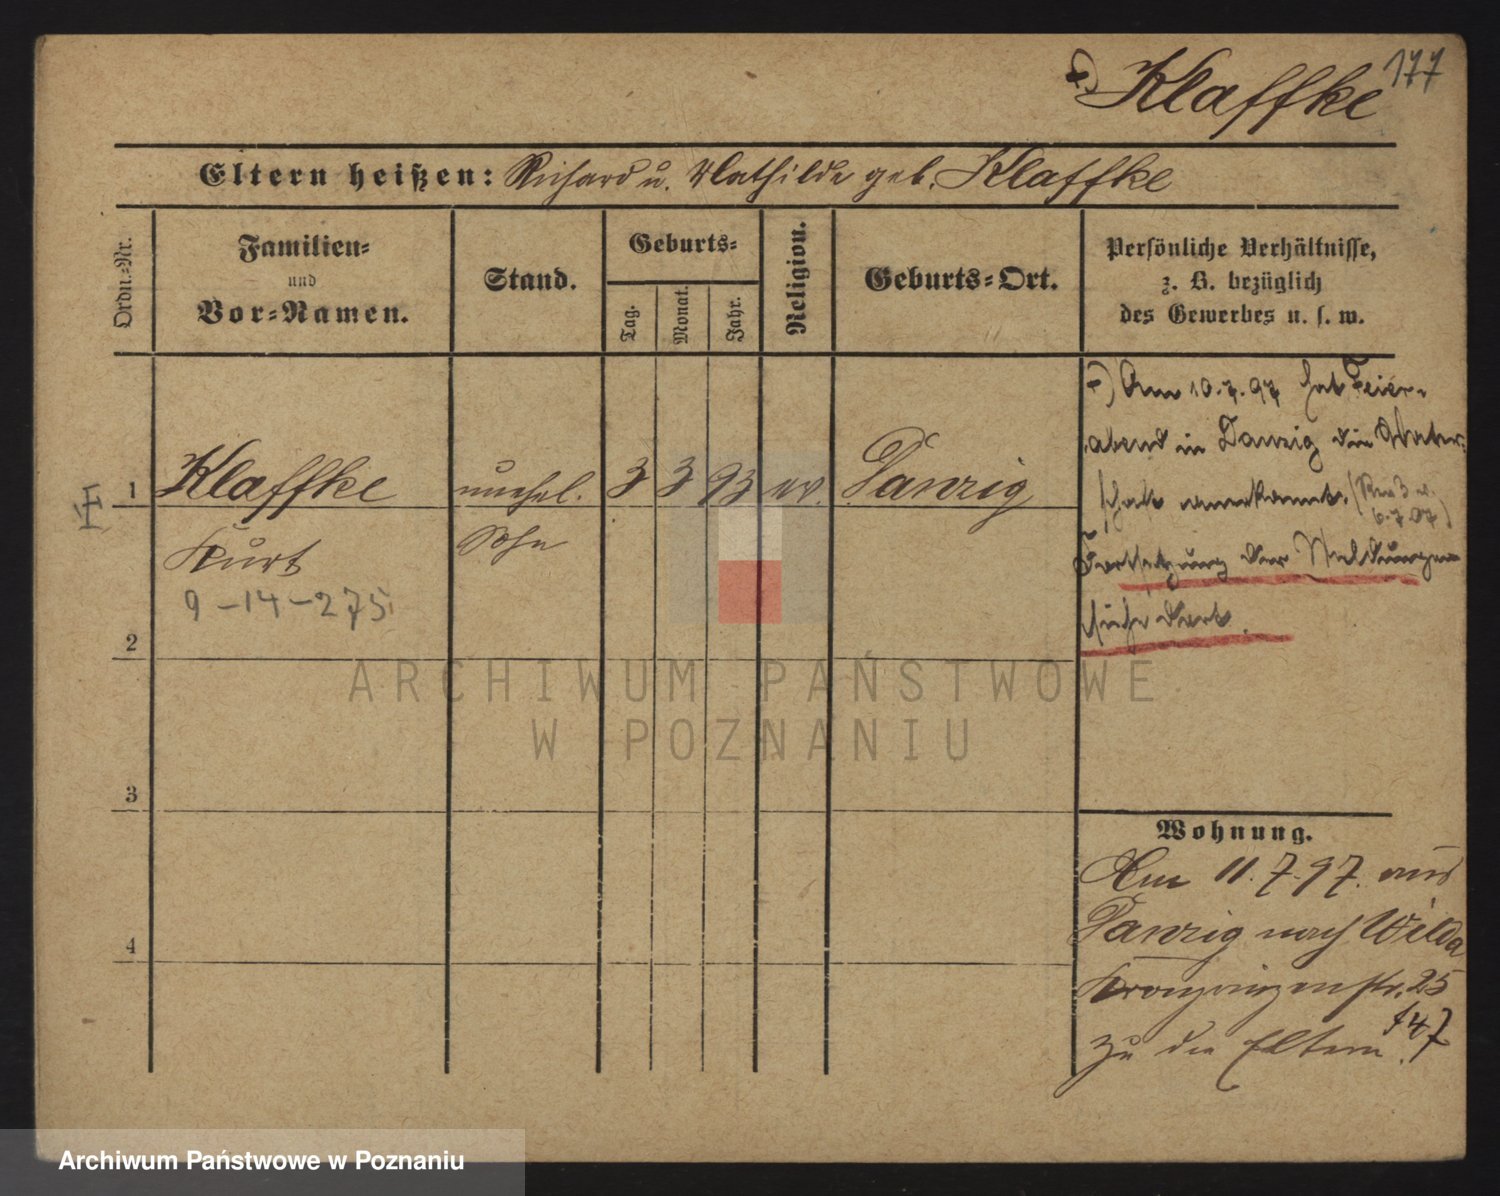 177
+) Klaffke
Eltern heißen: Richard u. Mathilde geb. Klaffke
Ordn.-Nr.
Familien-
und
Vor-Namen.
Stand.
Geburts-
Tag.
Monat.
Jahr.
Religion.
Geburts-Ort.
Persönliche Verhältnisse,
z. B. bezüglich
des Gewerbes u. s. w.
1
Klaffke
unehel.
3
3
93
ev.
Danzig
Kurt
Sohn
9-14-275
+) Am 10.7.97 hat Feier-
abend in Danzig die Vater-
schaft anerkannt.
6.7.07)
Fortsetzung der Meldungen
siehe dort.
2
3
4
Wohnung.
Am 11.7.97. aus
Danzig nach Wilda
Kronprinzenstr. 25
zu den Eltern. 147
ARCHIWUM PAŃSTWOWE
W POZNANIU
Archiwum Państwowe w Poznaniu